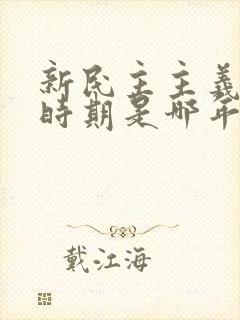 新民主主義
時期是哪年
戴江海